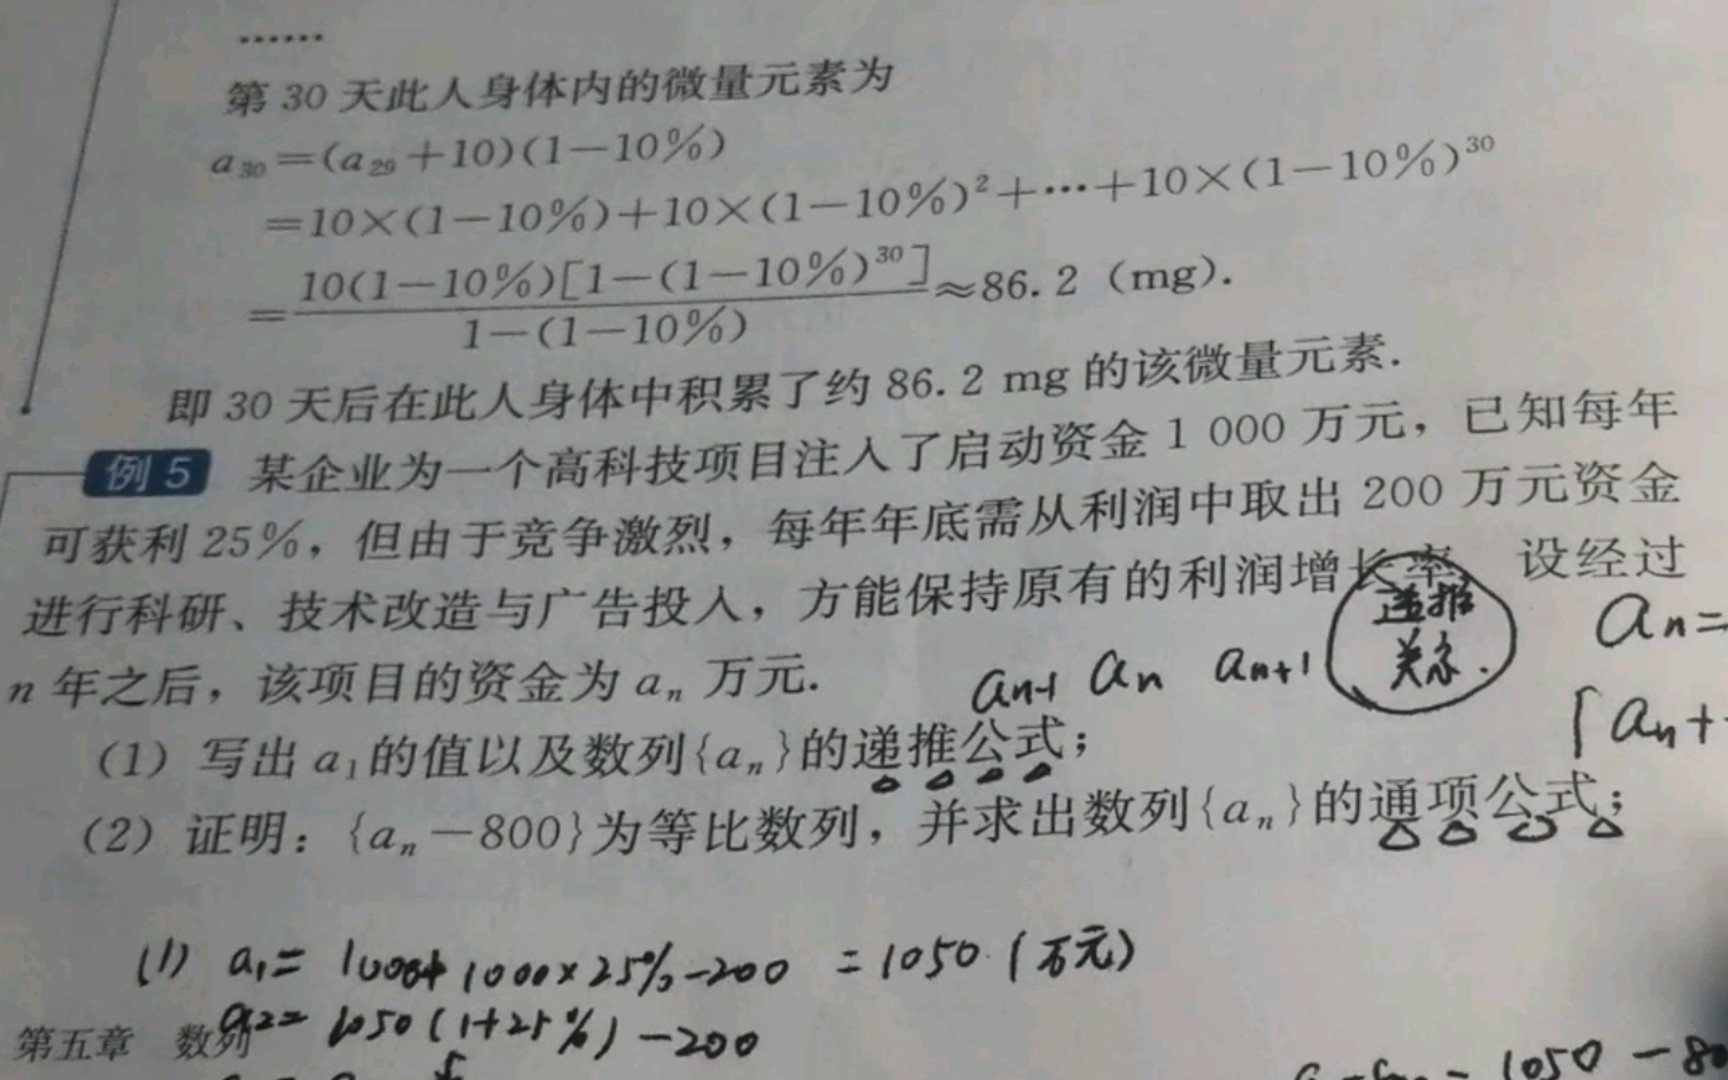 ……
第 30 天此人身体内的微量元素为
a₃₀=(a₂₉+10)(1-10%)
=10×(1-10%)+10×(1-10%)²+…+10×(1-10%)³⁰
=10(1-10%)[1-(1-10%)³⁰]/1-(1-10%)≈86.2 (mg).
即 30 天后在此人身体中积累了约 86.2 mg 的该微量元素.
例 5 某企业为一个高科技项目注入了启动资金 1 000 万元，已知每年
可获利 25%，但由于竞争激烈，每年年底需从利润中取出 200 万元资金
进行科研、技术改造与广告投入，方能保持原有的利润增长率 设经过
递推
关系.
aₙ=
n 年之后，该项目的资金为 aₙ 万元.
aₙ₋₁ aₙ aₙ₊₁
[aₙ+
(1) 写出 a₁的值以及数列{aₙ}的递推公式；
(2) 证明：{aₙ-800}为等比数列，并求出数列{aₙ}的通项公式；
(1) a₁= 1000+1000×25%-200 =1050 (万元)
a₂= 1050(1+25%)-200
第五章 数列
= 1050 - 80